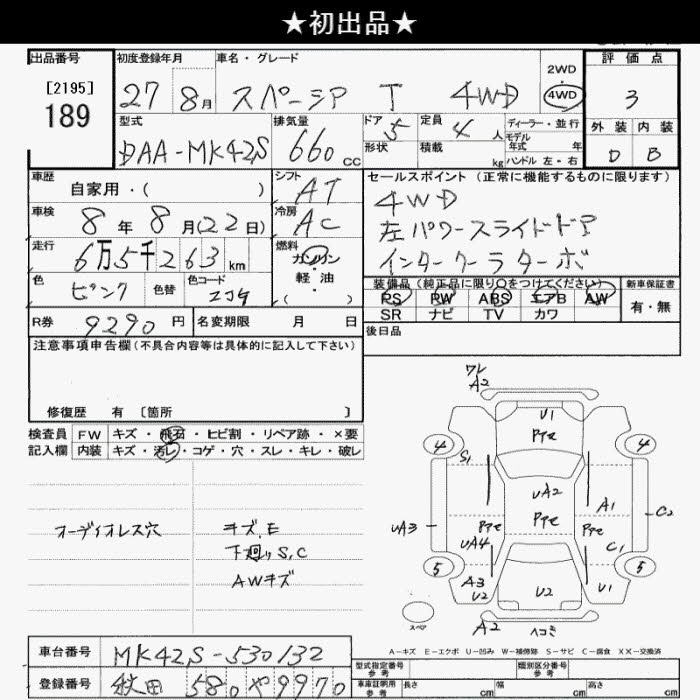 ★初出品★
出品番号 初度登録年月 車名・グレード 2WD 評価点
[2195] 27 8月 スペーシア T 4WD 4WD 3
189
型式 排気量 ドア 定員 ディーラー・並行 外装 内装
DAA-MK42S 660 CC 5 4人 モデル年式 年 D B
形状 積載 kg ハンドル 左・右
車歴 シフト セールスポイント (正常に機能するものに限ります)
自家用・( ) AT 4WD
車検 冷房 左パワースライドドア
8年8月(22日) AC インタークーラターボ
走行 燃料
6万5千263km ガソリン
軽油
( )
色 色替 色コード
ピンク
装備品(純正品に限り○をつけてください) 新車保証書
PS PW ABS エアB AW 有・無
SR ナビ TV カワ
R券 9290円 名変期限 月 日 後日品
注意事項申告欄(不具合内容等は具体的に記入して下さい)
修復歴 有 [箇所 ]
検査員 FW キズ・飛石・ヒビ割・リペア跡・×要
記入欄 内装 キズ・汚レ・コゲ・穴・スレ・キレ・破レ
オーディオレス穴 キズ.E
下廻りS,C
AWキズ
ワレ
A2
U1
4 4
S1
UA2
A1
UA3 C2
UA4
C1
5 5
A3
U2 U2 U1
スペア
A2 ヘコミ
A-キズ E-エクボ U-凹み W-補修跡 S-サビ C-腐食 XX-交換済
車台番号 MK42S-530132
登録番号 秋田 580 や 9970
型式指定番号 参考 類別区分番号 参考
車庫証明用 参考 長さ cm 幅 cm 高さ cm